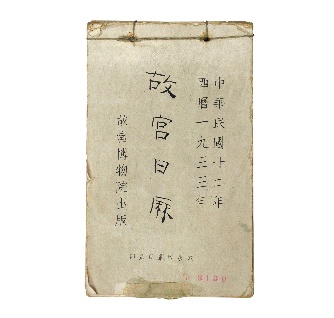 中華民國廿二年
西曆一九三三年
故宮日厤
故宮博物院出版